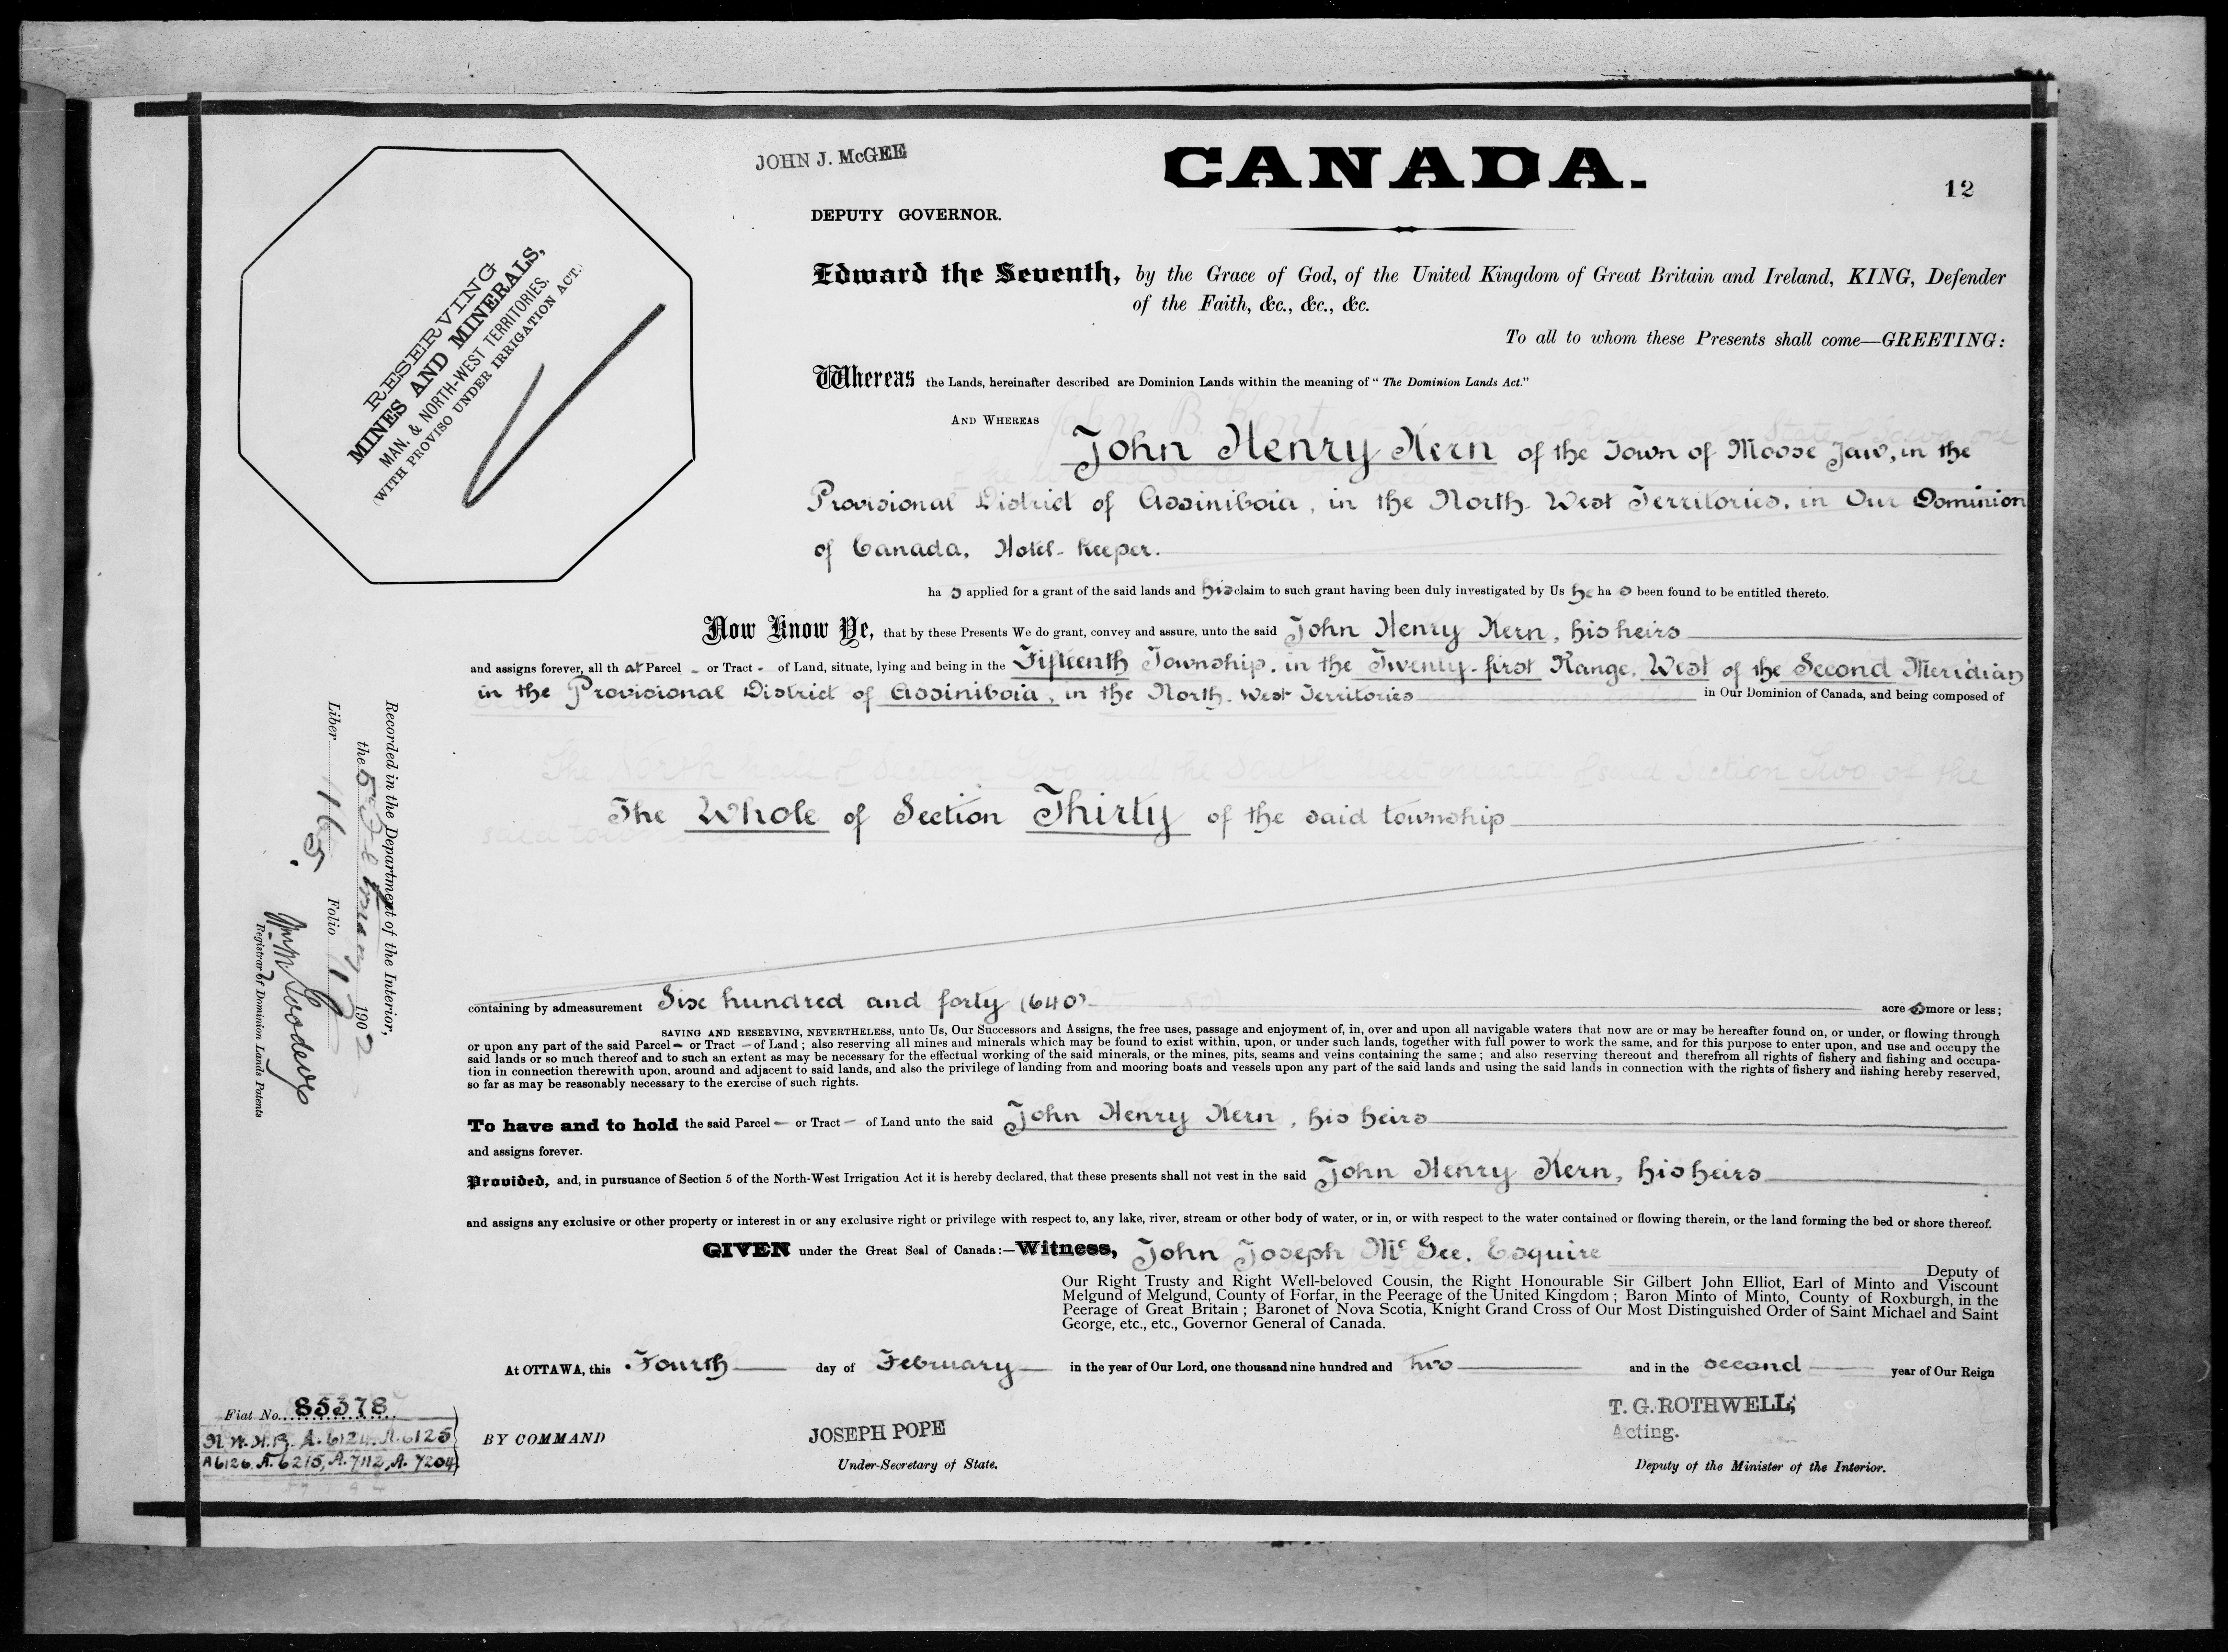 JOHN J. McGEE
CANADA.
12
DEPUTY GOVERNOR.
RESERVING
MINES AND MINERALS,
MAN. & NORTH-WEST TERRITORIES.
(WITH PROVISO UNDER IRRIGATION ACT.)
Edward the Seventh, by the Grace of God, of the United Kingdom of Great Britain and Ireland, KING, Defender
of the Faith, &c., &c., &c.
To all to whom these Presents shall come—GREETING:
Whereas the Lands, hereinafter described are Dominion Lands within the meaning of "The Dominion Lands Act."
AND WHEREAS
John Henry Kern of the Town of Moose Jaw, in the
Provisional District of Assiniboia, in the North-West Territories, in Our Dominion
of Canada, Hotel-Keeper.
ha s applied for a grant of the said lands and his claim to such grant having been duly investigated by Us he ha s been found to be entitled thereto.
Now Know Ye, that by these Presents We do grant, convey and assure, unto the said John Henry Kern, his heirs
and assigns forever, all th at Parcel - or Tract - of Land, situate, lying and being in the Fifteenth Township, in the Twenty-first Range, West of the Second Meridian
in the Provisional District of Assiniboia, in the North-West Territories in Our Dominion of Canada, and being composed of
The Whole of Section Thirty of the said township
containing by admeasurement Six hundred and forty (640) acre s more or less;
SAVING AND RESERVING, NEVERTHELESS, unto Us, Our Successors and Assigns, the free uses, passage and enjoyment of, in, over and upon all navigable waters that now are or may be hereafter found on, or under, or flowing through
or upon any part of the said Parcel - or Tract - of Land; also reserving all mines and minerals which may be found to exist within, upon, or under such lands, together with full power to work the same, and for this purpose to enter upon, and use and occupy the
said lands or so much thereof and to such an extent as may be necessary for the effectual working of the said minerals, or the mines, pits, seams and veins containing the same; and also reserving thereout and therefrom all rights of fishery and fishing and occupa-
tion in connection therewith upon, around and adjacent to said lands, and also the privilege of landing from and mooring boats and vessels upon any part of the said lands and using the said lands in connection with the rights of fishery and fishing hereby reserved,
so far as may be reasonably necessary to the exercise of such rights.
To have and to hold the said Parcel - or Tract - of Land unto the said John Henry Kern, his heirs
and assigns forever.
Provided, and, in pursuance of Section 5 of the North-West Irrigation Act it is hereby declared, that these presents shall not vest in the said John Henry Kern, his heirs
and assigns any exclusive or other property or interest in or any exclusive right or privilege with respect to, any lake, river, stream or other body of water, or in, or with respect to the water contained or flowing therein, or the land forming the bed or shore thereof.
GIVEN under the Great Seal of Canada:—Witness, John Joseph McGee, Esquire
Deputy of
Our Right Trusty and Right Well-beloved Cousin, the Right Honourable Sir Gilbert John Elliot, Earl of Minto and Viscount
Melgund of Melgund, County of Forfar, in the Peerage of the United Kingdom; Baron Minto of Minto, County of Roxburgh, in the
Peerage of Great Britain; Baronet of Nova Scotia, Knight Grand Cross of Our Most Distinguished Order of Saint Michael and Saint
George, etc., etc., Governor General of Canada.
At OTTAWA, this Fourth day of February in the year of Our Lord, one thousand nine hundred and two and in the second year of Our Reign
Fiat No. 85378
N.W.H.B. A.6124, A.6125
A6126, A.6215, A.7112, A.7204
BY COMMAND
JOSEPH POPE
Under-Secretary of State.
T. G. ROTHWELL,
Acting.
Deputy of the Minister of the Interior.
Recorded in the Department of the Interior,
the 5 February 1902
Liber 165. Folio 12
Registrar of Dominion Lands Patents